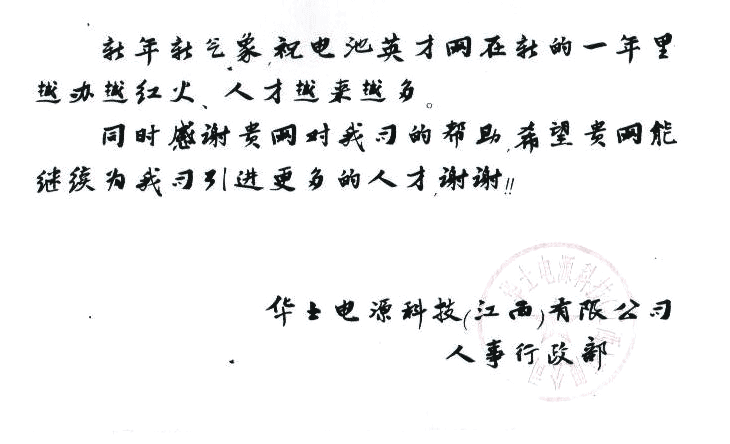 新年新气象,祝电池英才网在新的一年里
越办越红火、人才越来越多。
同时感谢贵网对我司的帮助,希望贵网能
继续为我司引进更多的人才,谢谢!!
华士电源科技(江西)有限公司
人事行政部